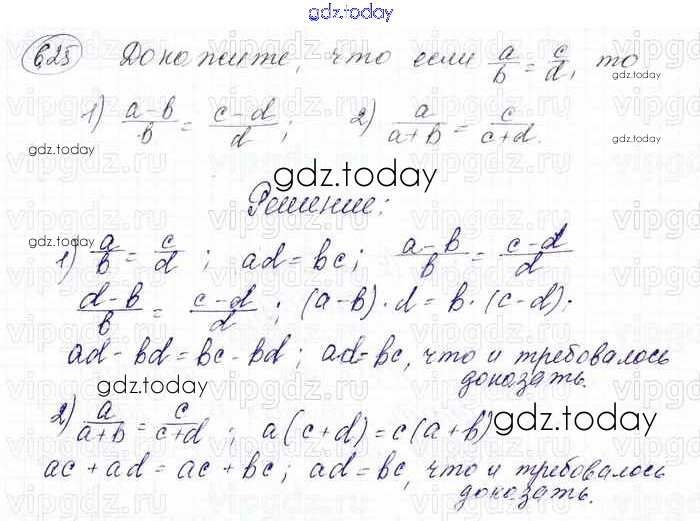 gdz.today
625 Докажите, что если a/b = c/d, то
gdz.today
1) (a-b)/b = (c-d)/d; 2) a/(a+b) = c/(c+d).
gdz.today
gdz.today
gdz.today
Решение:
gdz.today
1) a/b = c/d; ad = bc; (a-b)/b = (c-d)/d
(d-b)/b = (c-d)/d; (a-b)·d = b·(c-d);
ad - bd = bc - bd; ad = bc, что и требовалось
gdz.today
доказать.
2) a/(a+b) = c/(c+d); a(c+d) = c(a+b)
gdz.today
ac + ad = ac + bc; ad = bc, что и требовалось
доказать.